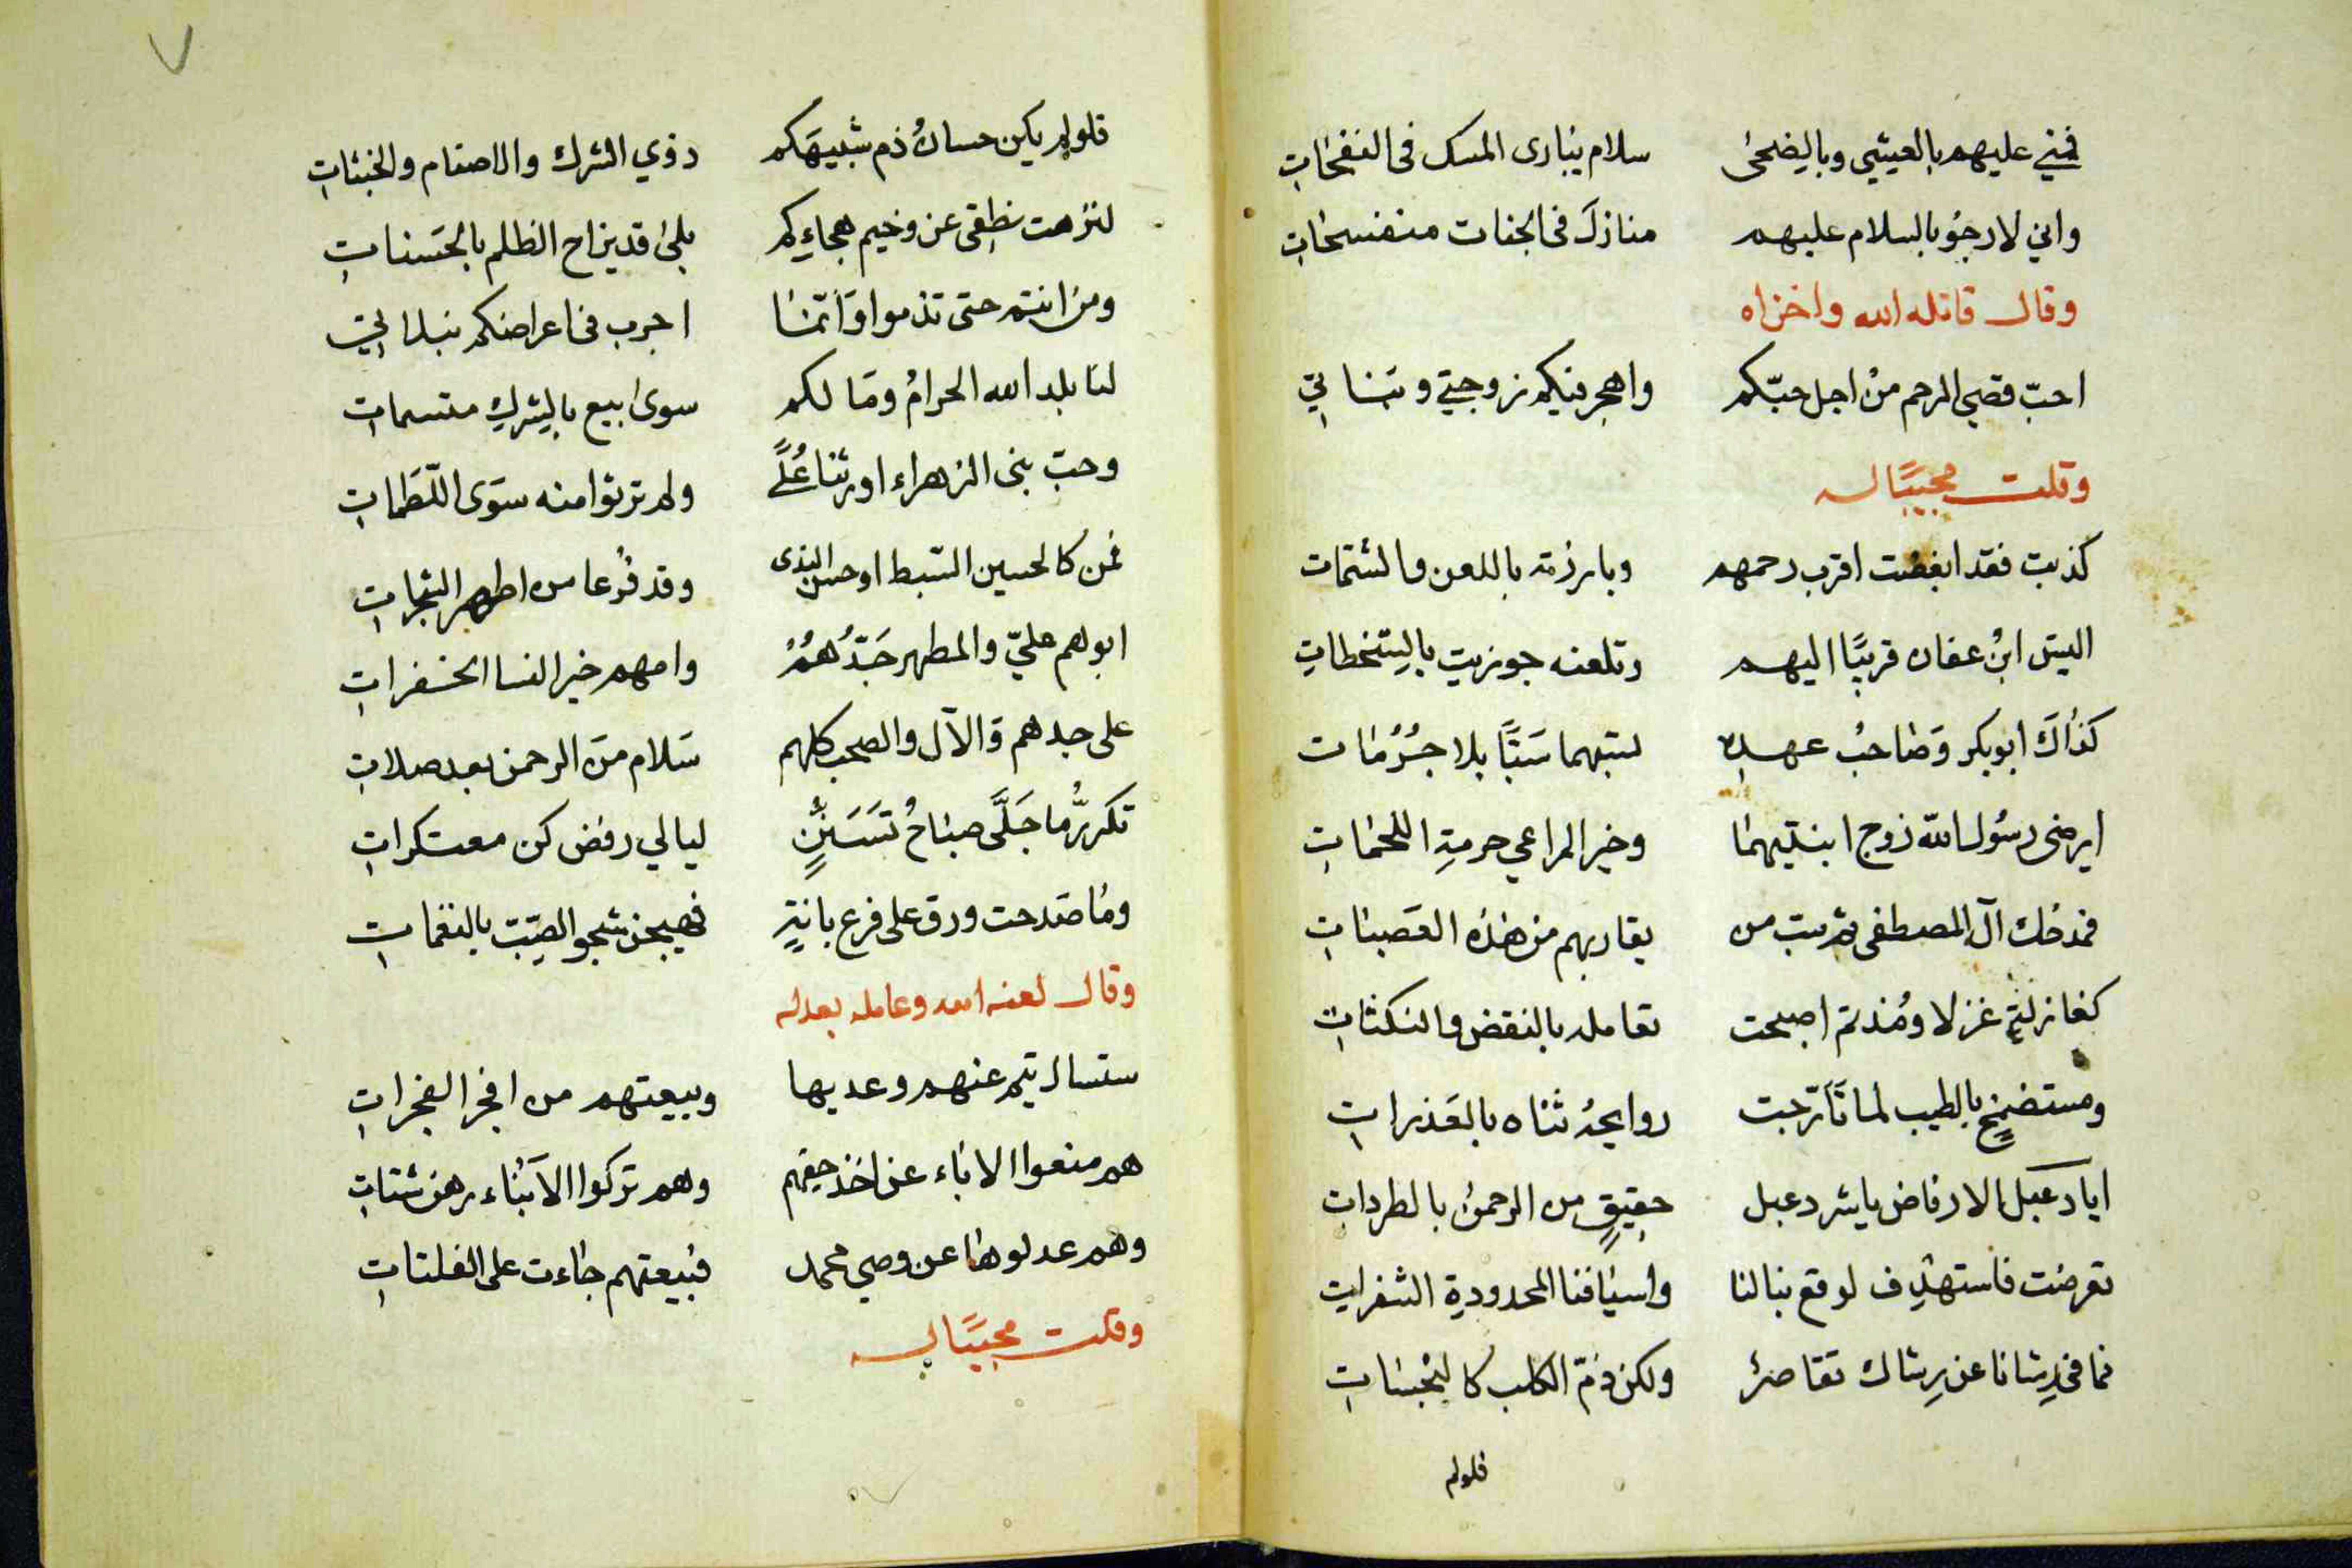 فمني عليهم بالعشي وبالضحى سلام يبارى المسك فى النفحات
واني لارجو بالسلام عليهم منازل فى الجنات منفسحات
وقال قاتله الله واخزاه
احبّ قصي الرحم من اجل حبّكم واهجر فيكم زوجتي وبناتي
وقلت مجيبًا له
كذبت فقد ابغضت اقرب رحمهم وبارزته باللعن والشتمات
اليس ابن عفان قريبًا اليهم وتلعنه جوزيت بالسخطات
كذاك ابوبكر وصاحب عهده تسبهما سَبًّا بلا جُرُمات
ايرضى رسول الله زوج ابنتيهما وخير المراعي حرمة اللحمات
فمدحك آل المصطفى ثم سب من يقاربهم من هذه العصبات
كغازلة غزلا ومذ تم اصبحت تعامله بالنقض والنكثات
ومستضمخ بالطيب لما تأرّجت روايحه ثناه بالقذرات
ايا دعبل الارفاض يا شر دعبل حقيق من الرحمن بالطردات
تعرضت فاستهدف لوقع نبالنا واسيافنا المحدودة الشفرات
فما فى رشانا عن رشاك تقاصر ولكن ذمّ الكلب كالنجسات
فلولم
فلولم يكن حسان ذم شبيهكم ذوي الشرك والاصنام والخبثات
لنزهت نطقى عن وخيم هجاءكم بلى قد يزاح الظلم بالحسنات
ومن انتم حتى تذموا وَانّما اجرب فى اعراضكم نبلاتي
لنا بلد الله الحرام ومَا لكم سوى ابيع بالشرك متسمات
وحبّ بنى الزهراء اورثنا عُلًى ولم ترثوا منه سوى اللّطمات
فمن كالحسين السّبط اوحسن الندى وقد فرعا من اطهر الشجرات
ابوهم عليّ والمطهر جَدُّهُمُ وامهم خير النسا الخفرات
على جدهم وَالآل والصحب كلهم سَلام منَ الرحمن بعد صلات
تكرر ما جَلَّى صباح تَسَنُّنٍ ليالي رفض كن معتكرات
ومَا صَدحت ورق على فرع بانةٍ فهيجن شجو الصّب بالنغمات
وقال لعنه الله وعامله بعدله
ستسال تيم عنهم وعديها وبيعتهم من افجر الفجرات
هم منعوا الاباء عن اخذ حقهم وهم تركوا الابناء رهن شتات
وهم عدلوها عن وصي محمد فبيعتهم جاءت على الفلتات
وقلت مجيبًا له